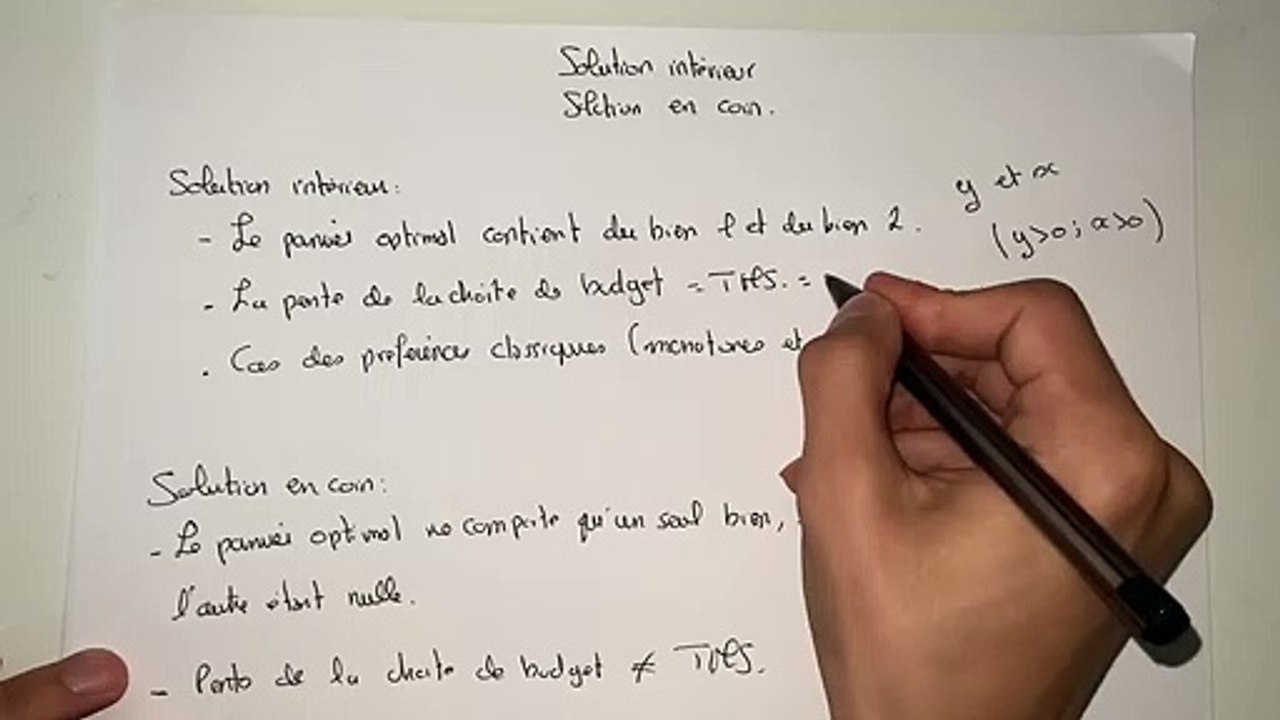 Solution intérieur
Slction en coin.
Solution intérieur:
y et x
- Le panier optimal contient du bien 1 et du bien 2.
(y>0; x>0)
- La pente de la droite de budget = TMS. =
. Cas des préférences classiques (monotones et
Solution en coin:
- Le panier optimal ne comporte qu'un seul bien,
l'autre étant nulle.
- Pente de la droite de budget ≠ TMS.